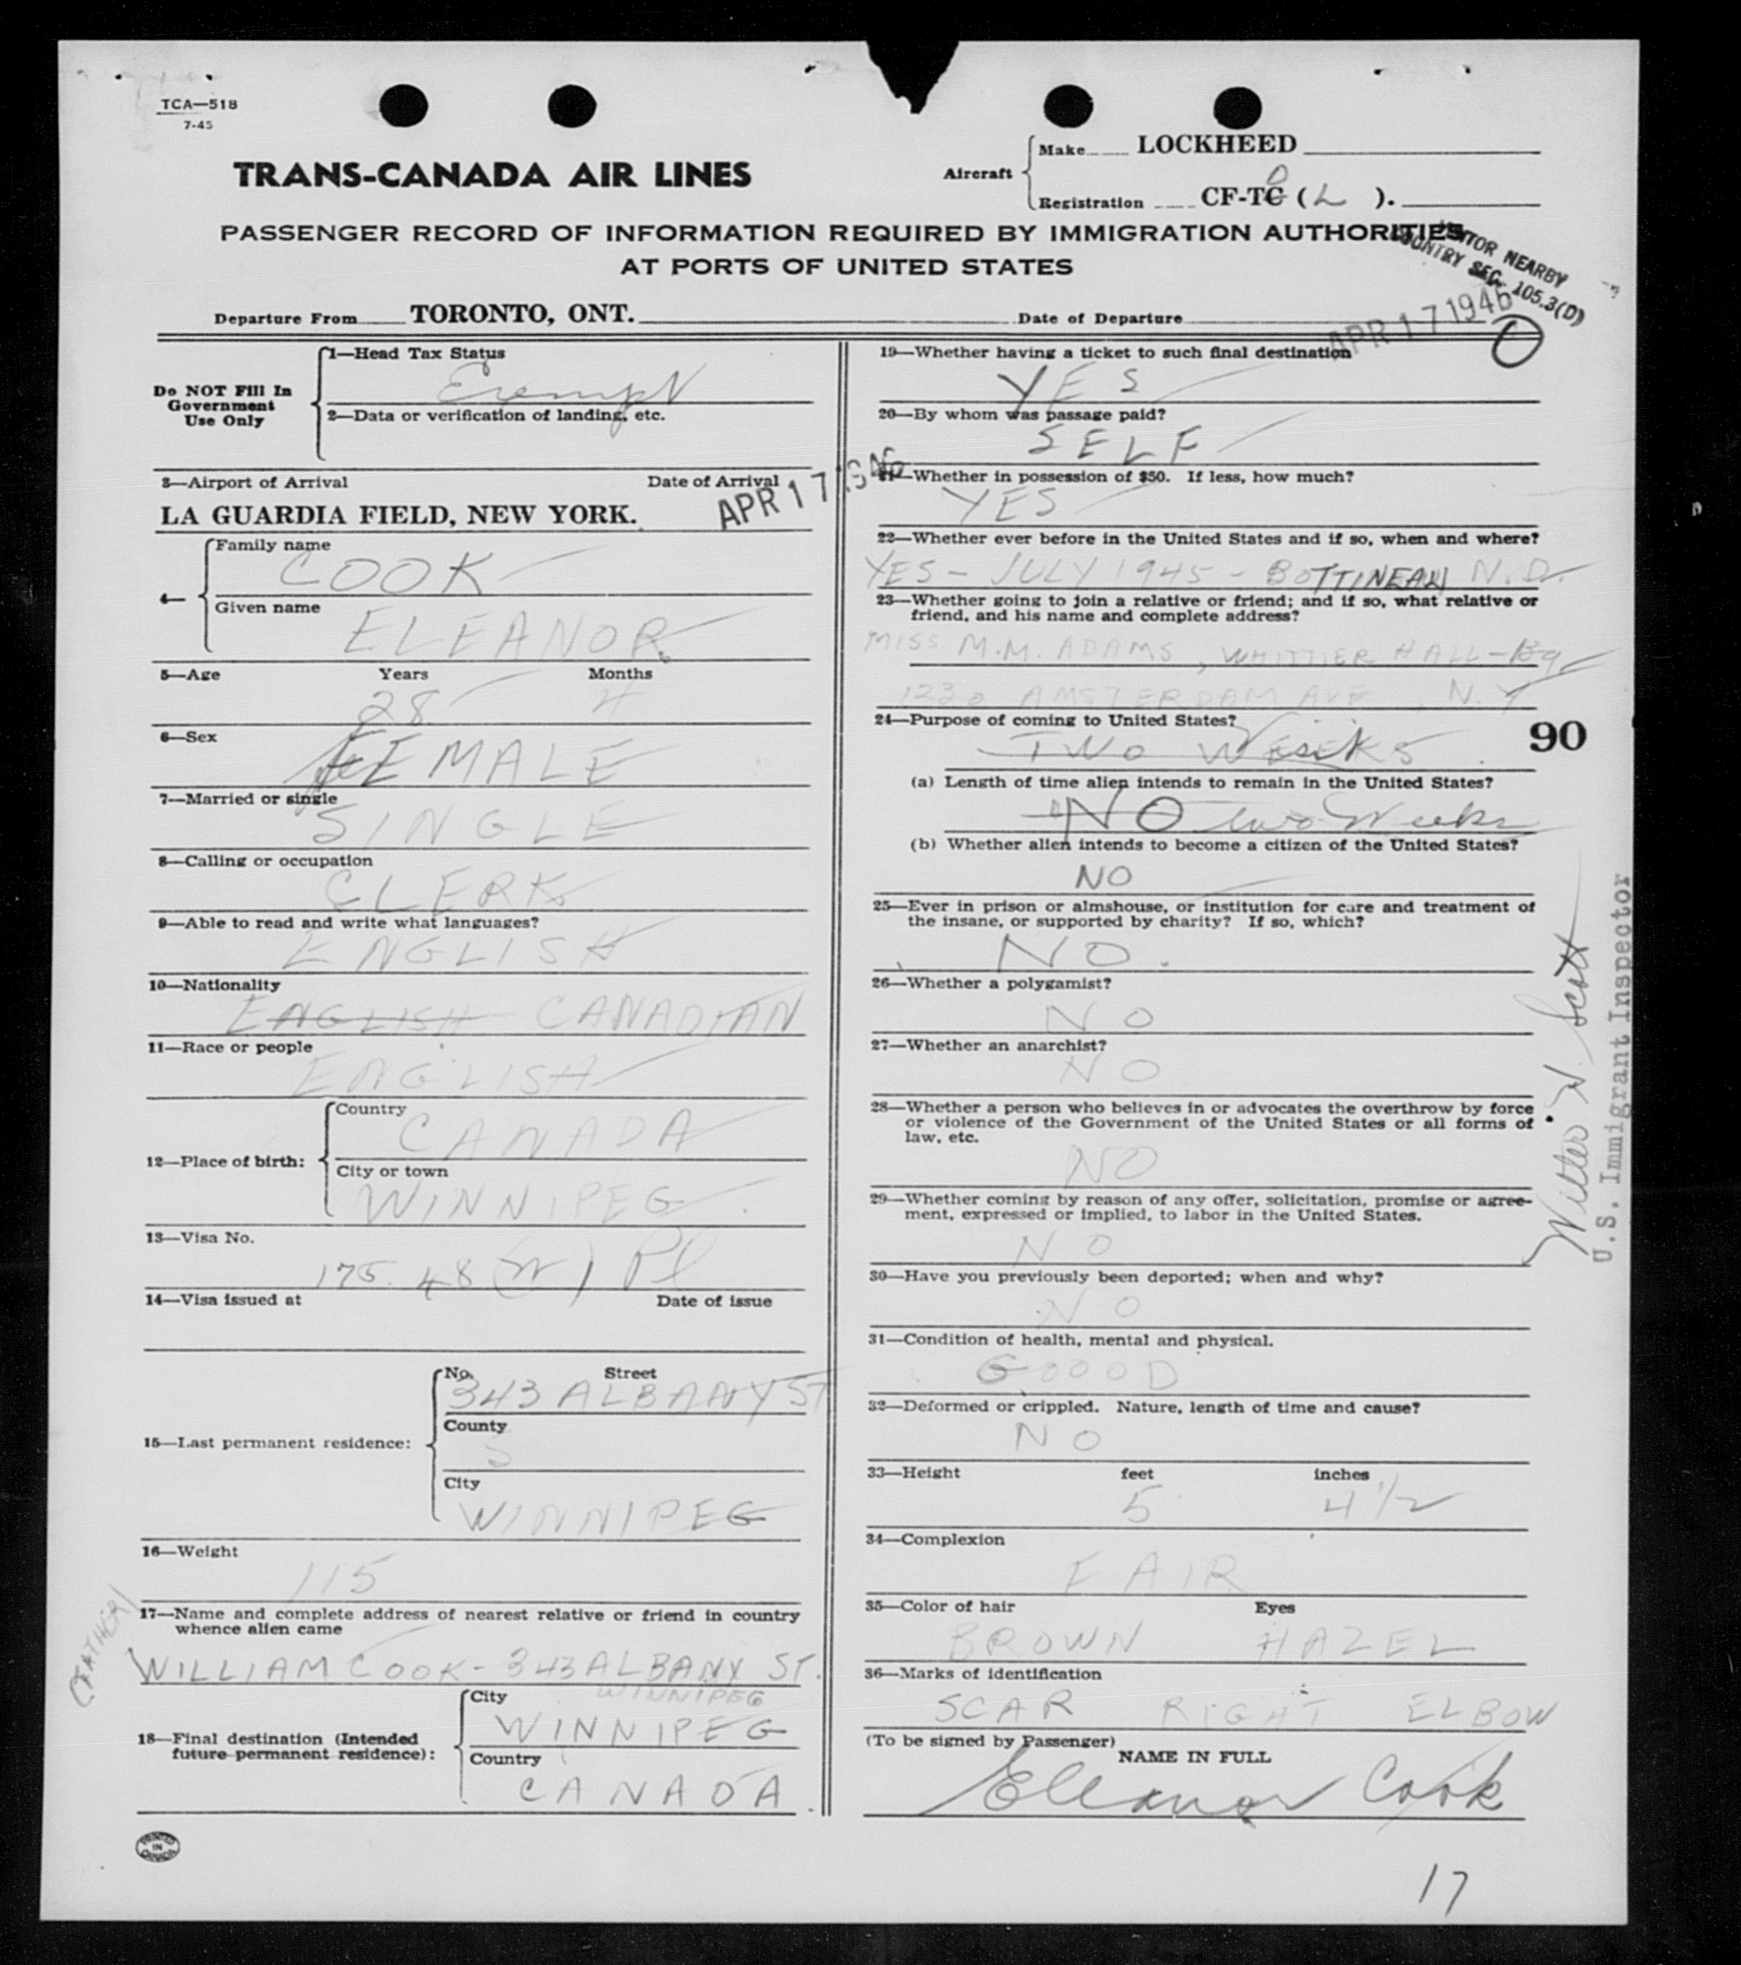 TCA—518
7-45
TRANS-CANADA AIR LINES
Aircraft
Make LOCKHEED
Registration CF-TC (L ).
D
PASSENGER RECORD OF INFORMATION REQUIRED BY IMMIGRATION AUTHORITIES
AT PORTS OF UNITED STATES
VISITOR NEARBY
COUNTRY SEC. 105.3(D)
Departure From TORONTO, ONT. Date of Departure APR 17 1946
Do NOT Fill In
Government
Use Only
1—Head Tax Status
Exempt
2—Data or verification of landing, etc.
3—Airport of Arrival Date of Arrival
LA GUARDIA FIELD, NEW YORK. APR 17 1946
4—
Family name
COOK
Given name
ELEANOR
5—Age Years Months
28 4
6—Sex
FEMALE
7—Married or single
SINGLE
8—Calling or occupation
CLERK
9—Able to read and write what languages?
ENGLISH
10—Nationality
ENGLISH CANADIAN
11—Race or people
ENGLISH
12—Place of birth:
Country
CANADA
City or town
WINNIPEG
13—Visa No.
175.48
14—Visa issued at Date of issue
15—Last permanent residence:
No. Street
343 ALBANY ST
County
City
WINNIPEG
16—Weight
115
17—Name and complete address of nearest relative or friend in country
whence alien came
(FATHER)
WILLIAM COOK - 343 ALBANY ST.
WINNIPEG
18—Final destination (Intended
future permanent residence):
City
WINNIPEG
Country
CANADA
PRINTED
IN
CANADA
19—Whether having a ticket to such final destination
YES
20—By whom was passage paid?
SELF
21—Whether in possession of $50. If less, how much?
YES
22—Whether ever before in the United States and if so, when and where?
YES - JULY 1945 - BOTTINEAU N.D.
23—Whether going to join a relative or friend; and if so, what relative or
friend, and his name and complete address?
MISS M.M. ADAMS, WHITTIER HALL -
1230 AMSTERDAM AVE, N.Y
24—Purpose of coming to United States?
TWO WEEKS
90
(a) Length of time alien intends to remain in the United States?
NO two Weeks
(b) Whether alien intends to become a citizen of the United States?
NO
25—Ever in prison or almshouse, or institution for care and treatment of
the insane, or supported by charity? If so, which?
NO.
26—Whether a polygamist?
NO
27—Whether an anarchist?
NO
28—Whether a person who believes in or advocates the overthrow by force
or violence of the Government of the United States or all forms of
law, etc.
NO
29—Whether coming by reason of any offer, solicitation, promise or agree-
ment, expressed or implied, to labor in the United States.
NO
30—Have you previously been deported; when and why?
NO
31—Condition of health, mental and physical.
GOOOD
32—Deformed or crippled. Nature, length of time and cause?
NO
33—Height feet inches
5 4 1/2
34—Complexion
FAIR
35—Color of hair Eyes
BROWN HAZEL
36—Marks of identification
SCAR RIGHT ELBOW
(To be signed by Passenger)
NAME IN FULL
Eleanor Cook
U.S. Immigrant Inspector
17